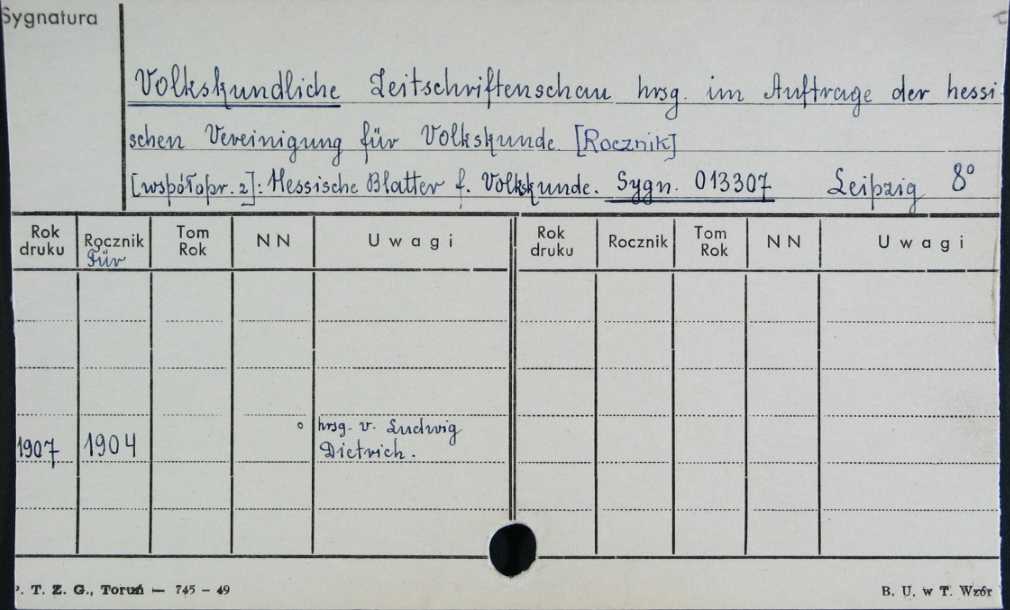 Sygnatura
Volkskundliche Zeitschriftenschau hrsg. im Auftrage der hessi
schen Vereinigung für Volkskunde. [Rocznik]
[współopr. z]: Hessische Blatter f. Volkskunde. Sygn. 013307 Leipzig 8°
Rok druku Rocznik Für Tom Rok N N U w a g i Rok druku Rocznik Tom Rok N N U w a g i
1907 1904 ° hrsg. v. Ludwig
Dietrich.
P. T. Z. G., Toruń — 745 – 49 B. U. w T. Wzór